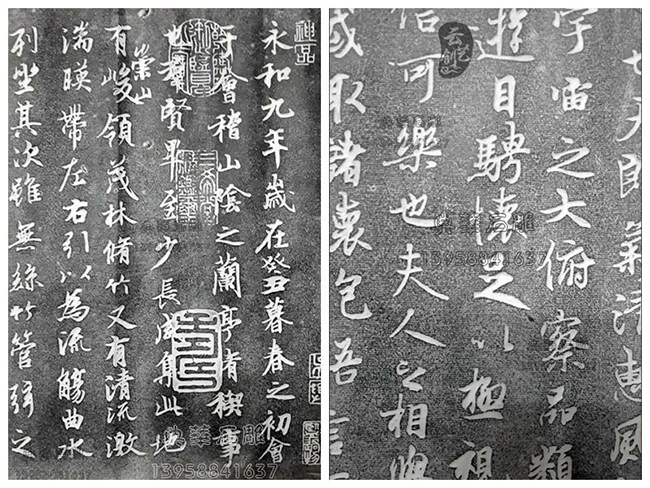 永和九年歲在癸丑暮春之初會
于會稽山陰之蘭亭脩稧事
也羣賢畢至少長咸集此地
有崇山峻領茂林脩竹又有清流激
湍暎帶左右引以為流觴曲水
列坐其次雖無絲竹管弦之
神品
13958841637
也天朗氣清惠風
宇宙之大俯察品類
遊目騁懷足以極視
信可樂也夫人之相與
或取諸懷抱吾言
13958841637